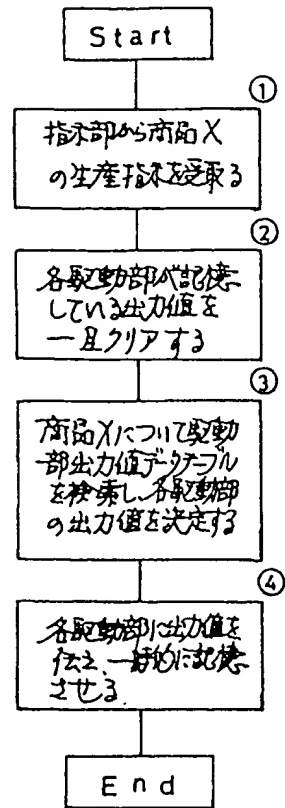 Start
①
指示部から商品X
の生産指示を受取る
②
各駆動部が記憶
している出力値を
一旦クリアする
③
商品Xについて駆動
部出力値データテーブル
を検索し、各駆動部
の出力値を決定する
④
各駆動部に出力値を
伝え、一時的に記憶
させる
End